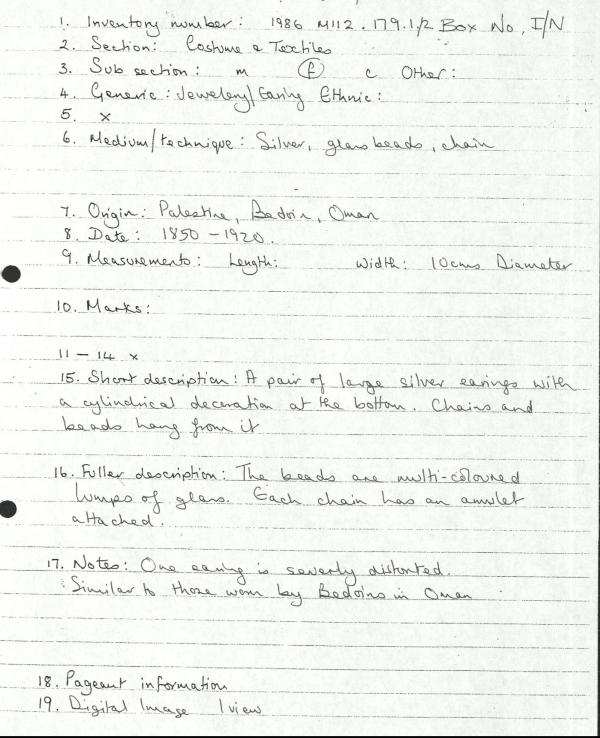 1. Inventory number: 1986 M112.179.1/2 Box No. I/N
2. Section: Costume & Textiles
3. Sub section: m f c Other:
4. Generic: Jewelery/Earing Ethnic:
5. x
6. Medium/technique: Silver, glass beads, chain
7. Origin: Palestine, Bedoin, Oman
8. Date: 1850 - 1920.
9. Measurements: Length: Width: 10cms Diameter
10. Marks:
11 - 14 x
15. Short description: A pair of large silver earings with
a cylindrical decoration at the bottom. Chains and
beads hang from it
16. Fuller description: The beads are multi-coloured
lumps of glass. Each chain has an amulet
attached.
17. Notes: One earing is severly distorted.
Similar to those worn by Bedoins in Oman
18. Pageant information
19. Digital Image 1 view